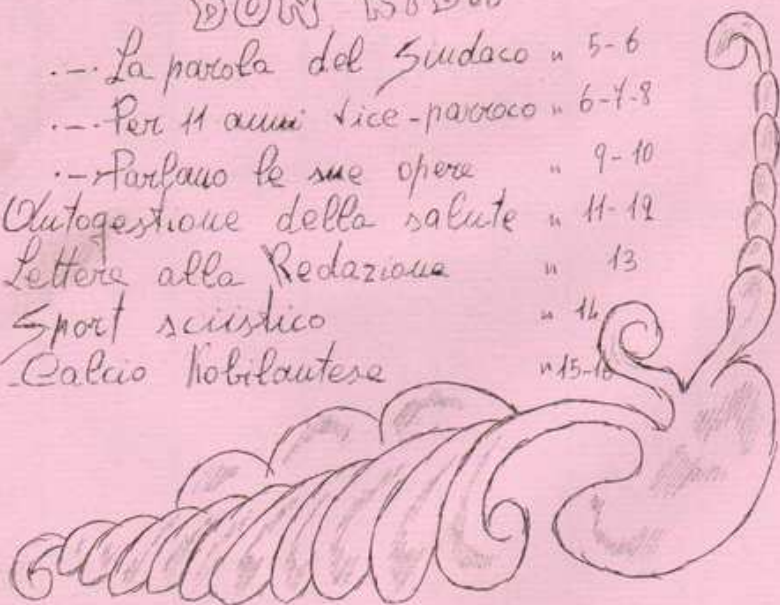 DON
.-. La parola del Sindaco " 5-6
.-. Per 11 anni vice-parroco " 6-7-8
.-. Parlano le sue opere " 9-10
Autogestione della salute " 11-12
Lettere alla Redazione " 13
Sport sciistico " 14
Calcio Robilantese " 15-16